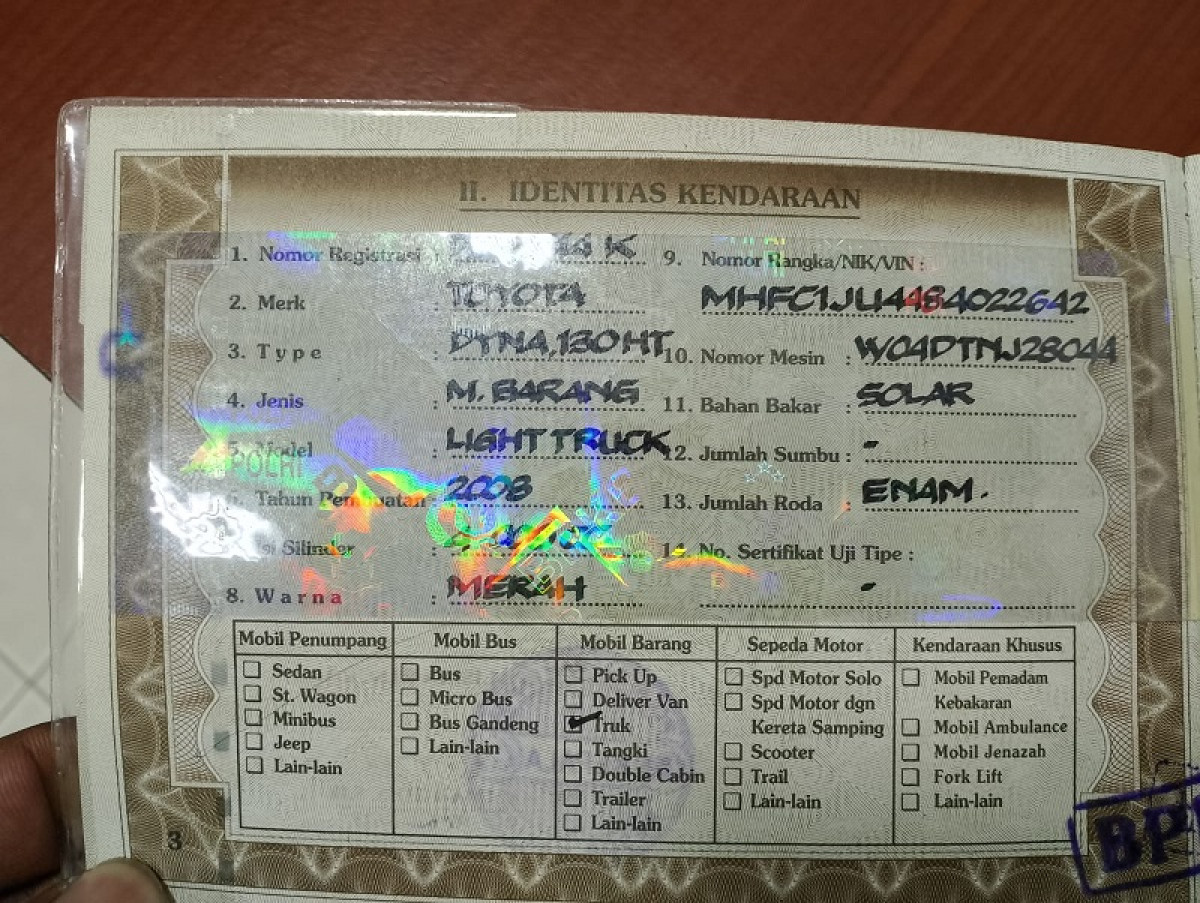 II. IDENTITAS KENDARAAN
1. Nomor Registrasi : K
2. Merk : TOYOTA
3. Type : DYNA, 130 HT
4. Jenis : M. BARANG
5. Model : LIGHT TRUCK
6. Tahun Pembuatan : 2008
Silinder :
8. Warna : MERAH
9. Nomor Rangka/NIK/VIN :
MHFC1JU4484022642
10. Nomor Mesin : W04DTNJ28044
11. Bahan Bakar : SOLAR
12. Jumlah Sumbu : -
13. Jumlah Roda : ENAM.
14. No. Sertifikat Uji Tipe :
-
Mobil Penumpang
Sedan
St. Wagon
Minibus
Jeep
Lain-lain
Mobil Bus
Bus
Micro Bus
Bus Gandeng
Lain-lain
Mobil Barang
Pick Up
Deliver Van
Truk
Tangki
Double Cabin
Trailer
Lain-lain
Sepeda Motor
Spd Motor Solo
Spd Motor dgn
Kereta Samping
Scooter
Trail
Lain-lain
Kendaraan Khusus
Mobil Pemadam
Kebakaran
Mobil Ambulance
Mobil Jenazah
Fork Lift
Lain-lain
3